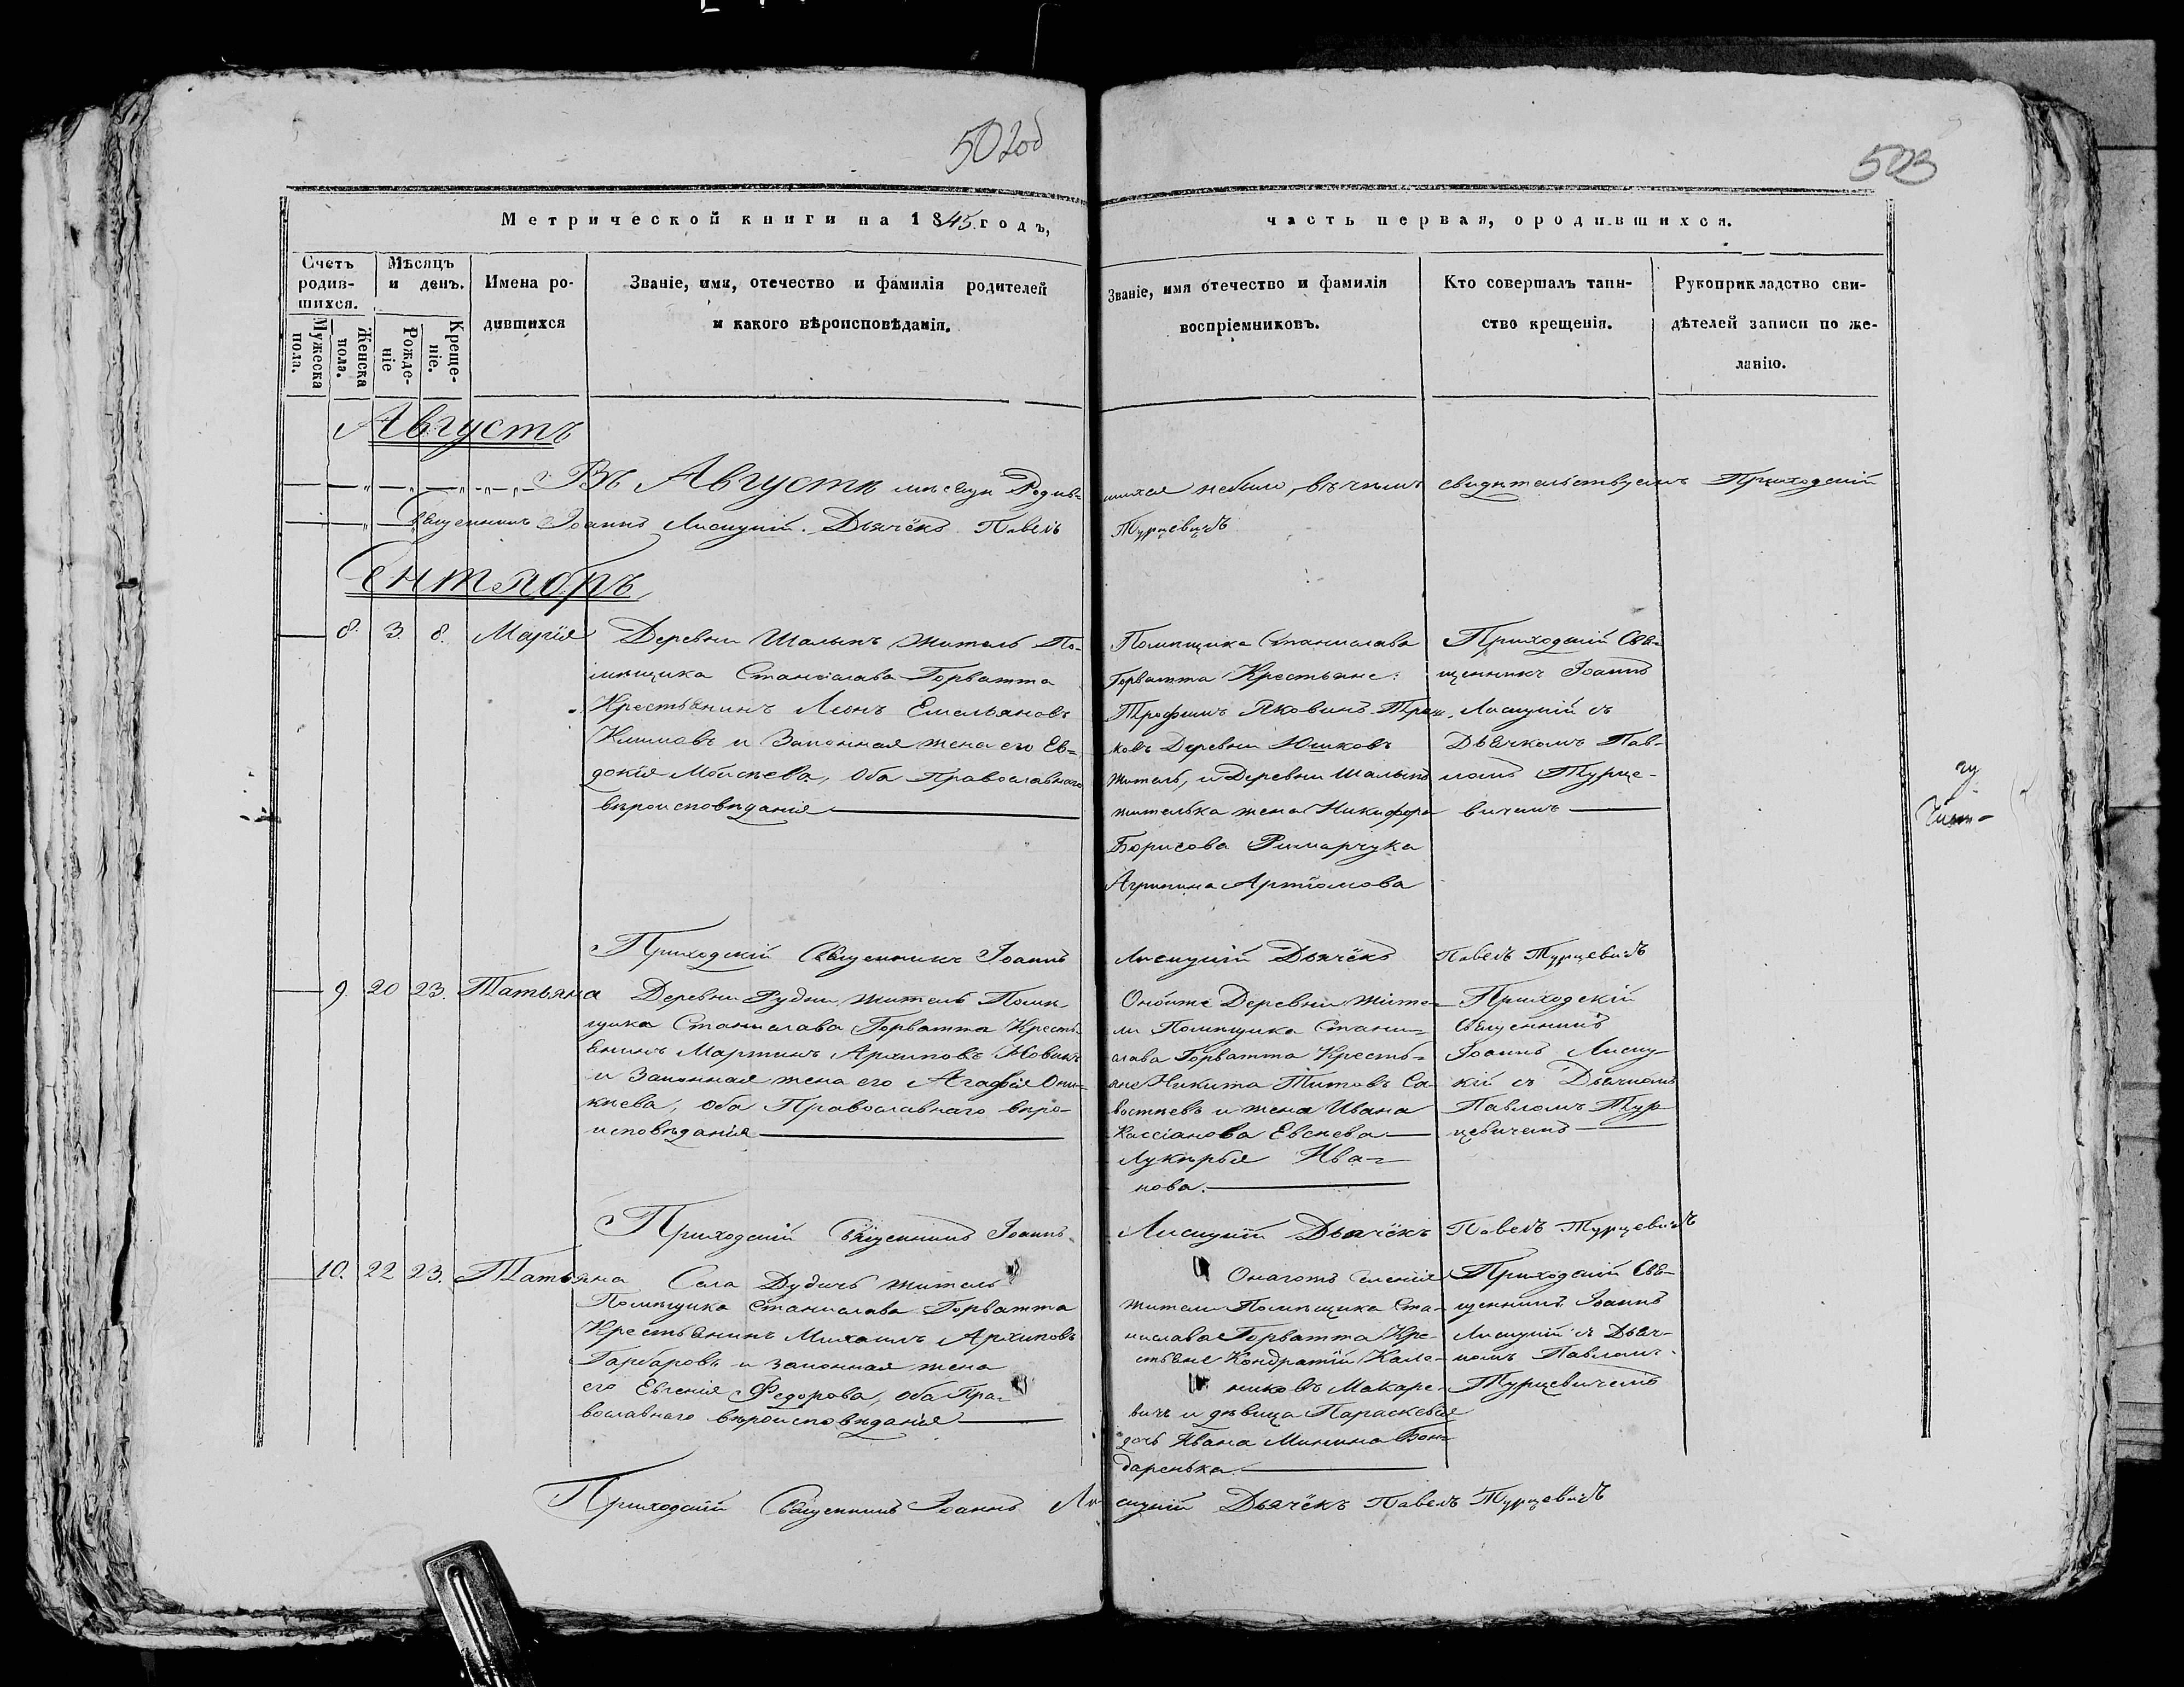 502об
503
Метрической книги на 1845 годъ,
часть первая, ородившихся.
Счетъ родив-шихся.
Мужеска пола.
Женска пола.
Мѣсяцъ и день.
Рожде-ніе
Креще-ніе.
Имена ро-
дившихся
Званіе, имя, отечество и фамилія родителей
и какого вѣроисповѣданія.
Званіе, имя отечество и фамилія
воспріемниковъ.
Кто совершалъ таин-
ство крещенія.
Рукоприкладство сви-
дѣтелей записи по же-
ланію.
Августъ
Въ Августѣ мѣсяцѣ Родив-
шихся небыло, въ чемъ свидѣтельствуемъ Приходскій
Священникъ Іоаннъ Лисицкій. Дьячёкъ Павелъ
Турцевичъ
Сентябръ
8. 3. 8. Марія
Деревни Шалыпъ житель По-
мѣщика Станислава Горватта
Крестьянинъ Леонъ Емельяновъ
Климовъ и Законная жена его Ев=
докія Моисѣева, Оба Православнаго
вѣроисповѣданія
Помѣщика Станислава
Горватта Крестьяне:
Трофимъ Яковинъ
ковъ Деревни Юшковъ
житель, и Деревни Шалыпъ
жителька жена Никифора
Борисова Римарчука
Агрипина Артіомова
Приходскій Свя=
щенникъ Іоаннъ
Лисицкій съ
Дьячкомъ Пав-
ломъ Турце-
вичемъ
Приходскій Священникъ Іоаннъ Лисицкій Дьячёкъ Павелъ Турцевичъ
9. 20 23. Татьяна
Деревни Рудни житель Помѣ
щика Станислава Горватта Кресть
янинъ Мартинъ Архиповъ Новикъ
и Законная жена его Агафія Они-
кѣева, Оба Православнаго вѣро-
исповѣданія
Оной же Деревни жите=
ли Помѣщика Стани=
слава Горватта Кресть=
яне Никита Титовъ Са-
востѣевъ и жена Ивана
Кассіанова Евсѣева
Лукѣрья Ива=
нова.
Приходскій
Священникъ
Іоаннъ Лисиц-
кій съ Дьячкомъ
Павломъ Тур-
цевичемъ
Приходскій Священникъ Іоаннъ Лисицкій Дьячёкъ Павелъ Турцевичъ
10. 22 23. Татьяна
Села Дудичъ житель
Помѣщика Станислава Горватта
Крестьянинъ Михаилъ Архиповъ
Гарбаровъ и законная жена
его Евгенія Федорова, Оба Пра-
вославнаго вѣроисповѣданія
Онагожъ селенія
жители Помѣщика Ста-
нислава Горватта Кре-
стьяне Кондратій Кале-
никовъ Макаре-
вичъ и дѣвица Параскевія
дочь Ивана Минина Бон=
даренька.
Приходскій Свя-
щенникъ Іоаннъ
Лисицкій съ Дьяч-
комъ Павломъ
Турцевичемъ
Приходскій Священникъ Іоаннъ Лисицкій Дьячёкъ Павелъ Турцевичъ